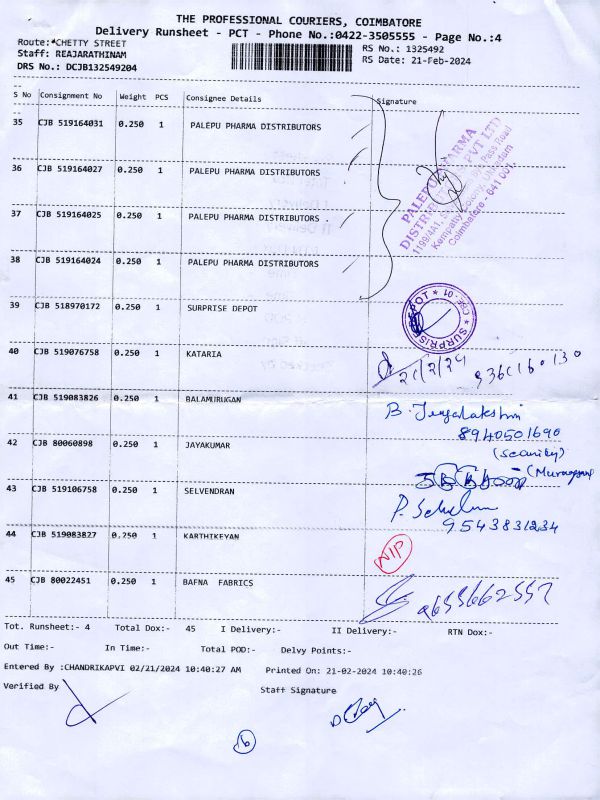 THE PROFESSIONAL COURIERS, COIMBATORE
Delivery Runsheet - PCT - Phone No.:0422-3505555 - Page No.:4
Route:*CHETTY STREET
RS No.: 1325492
Staff: REAJARATHINAM
RS Date: 21-Feb-2024
DRS No.: DCJB132549204
S No Consignment No Weight PCS Consignee Details Signature
35 CJB 519164031 0.250 1 PALEPU PHARMA DISTRIBUTORS
36 CJB 519164027 0.250 1 PALEPU PHARMA DISTRIBUTORS
37 CJB 519164025 0.250 1 PALEPU PHARMA DISTRIBUTORS .
38 CJB 519164024 0.250 1 PALEPU PHARMA DISTRIBUTORS
PALEPU PHARMA
DISTRIBUTORS PVT LTD
Coimbatore - 641 001.
39 CJB 518970172 0.250 1 SURPRISE DEPOT
SURPRISE DEPOT * CBE - 01 *
40 CJB 519076758 0.250 1 KATARIA
21/2/24
41 CJB 519083826 0.250 1 BALAMURUGAN
8940501690
42 CJB 80060898 0.250 1 JAYAKUMAR
43 CJB 519106758 0.250 1 SELVENDRAN
9543831234
44 CJB 519083827 0.250 1 KARTHIKEYAN
NIP
45 CJB 80022451 0.250 1 BAFNA FABRICS
9655662557
Tot. Runsheet:- 4 Total Dox:- 45 I Delivery:- II Delivery:- RTN Dox:-
Out Time:- In Time:- Total POD:- Delvy Points:-
Entered By :CHANDRIKAPVI 02/21/2024 10:40:27 AM Printed On: 21-02-2024 10:40:26
Verified By Staff Signature